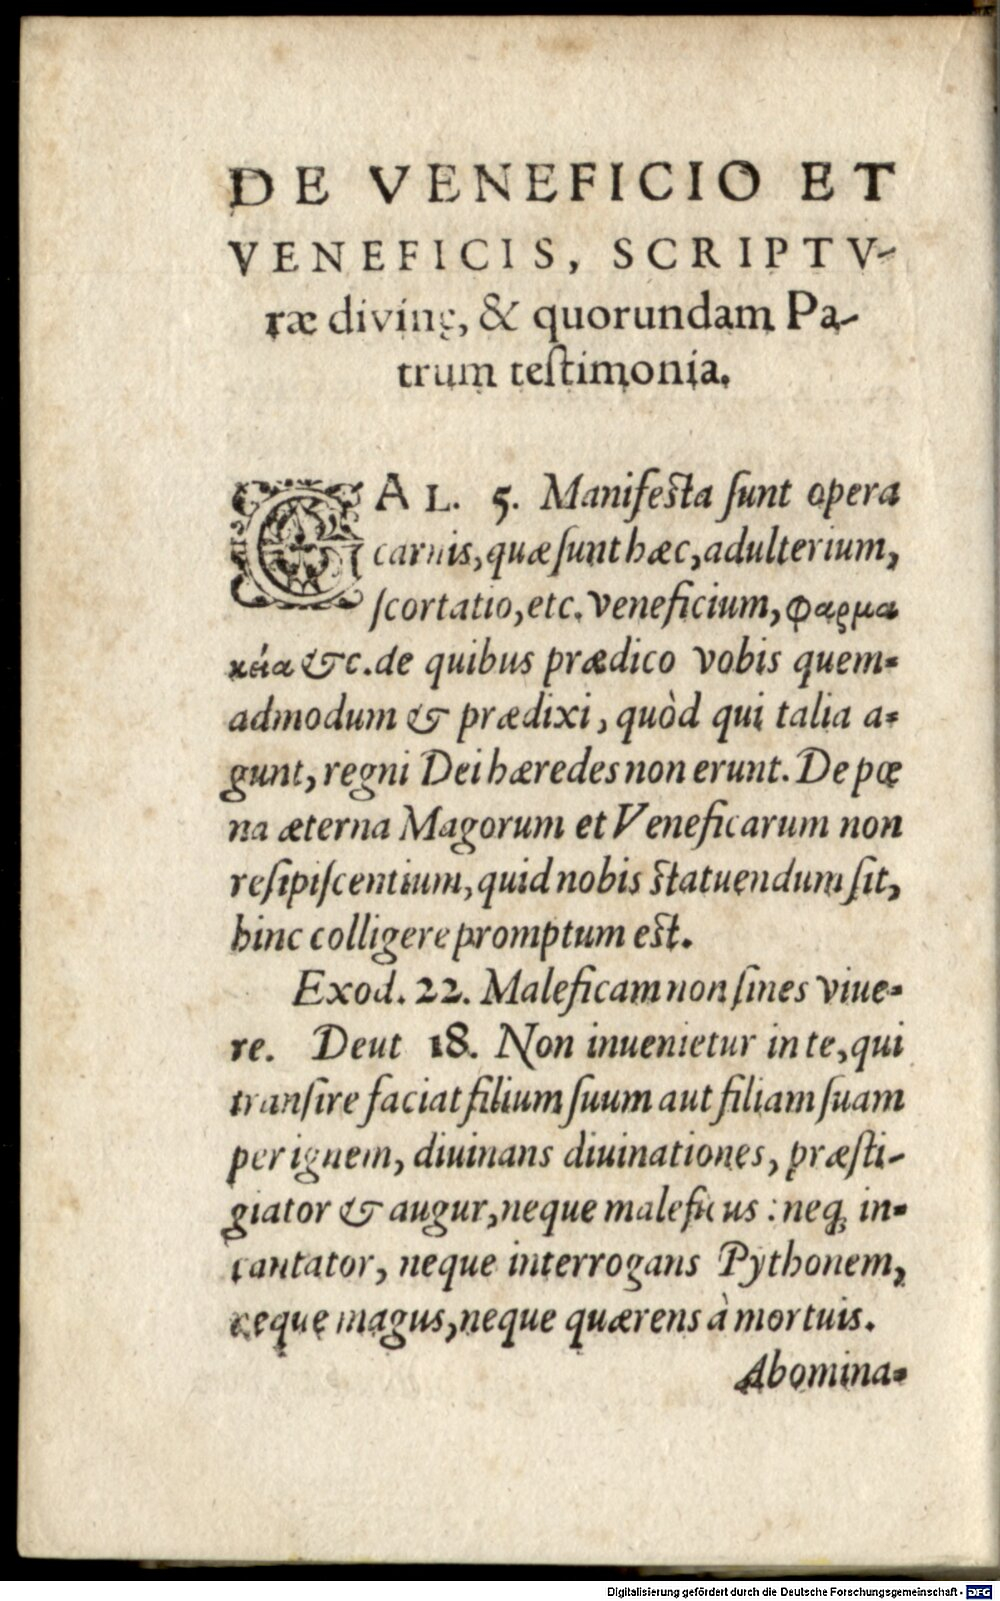 DE VENEFICIO ET
VENEFICIS, SCRIPTV-
ræ divinę, & quorundam Pa-
trum teſtimonia.
GAL. 5. Manifeſta ſunt opera
carnis, quæ ſunt hæc, adulterium,
ſcortatio, etc. veneficium, φαρμα
κεία &c. de quibus prædico vobis quem-
admodum & prædixi, quòd qui talia a-
gunt, regni Dei hæredes non erunt. De pœ
na æterna Magorum et Veneficarum non
reſipiſcentium, quid nobis ſtatuendum ſit,
hinc colligere promptum eſt.
Exod. 22. Maleficam non ſines viue-
re. Deut 18. Non inuenietur in te, qui
tranſire faciat filium ſuum aut filiam ſuam
per ignem, diuinans diuinationes, præſti-
giator & augur, neque maleficus: neq; in-
cantator, neque interrogans Pythonem,
neque magus, neque quærens à mortuis.
Abomina-
Digitalisierung gefördert durch die Deutsche Forschungsgemeinschaft - DFG